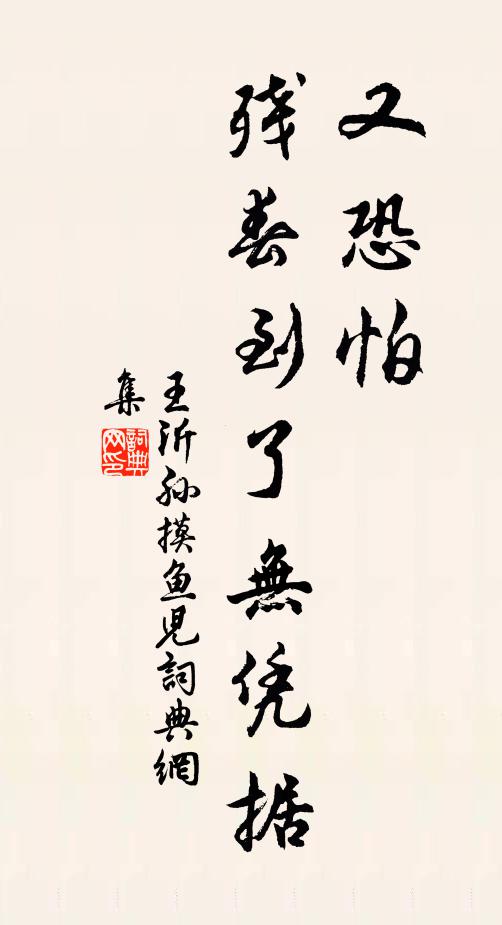 又恐怕
残春到了無凭据
王沂孙摸鱼児詞典網
集
詞典
网印